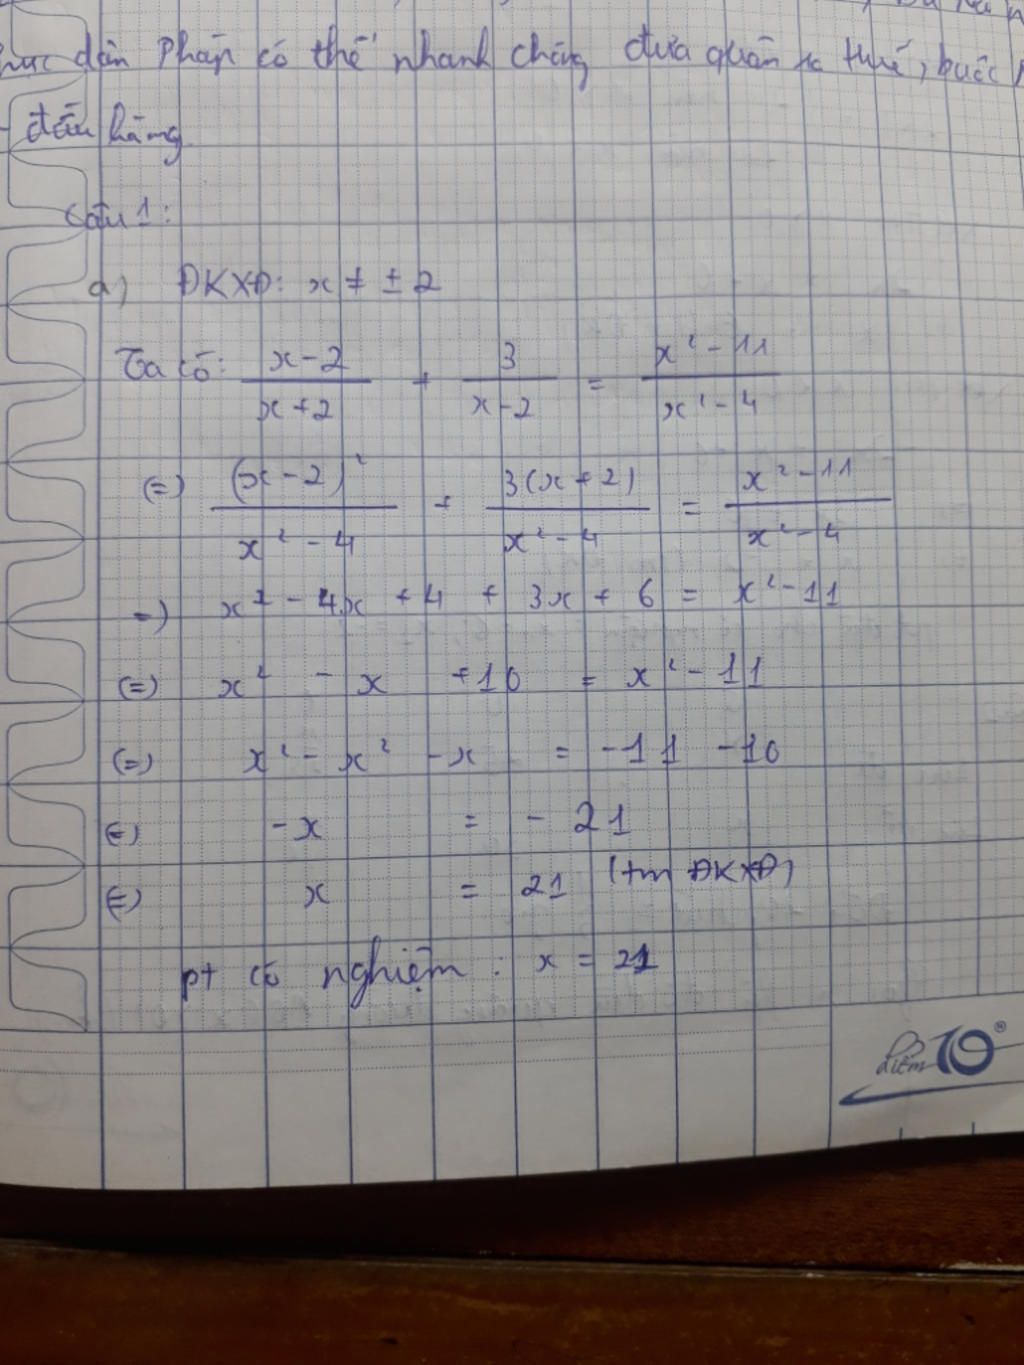 dân Pháp có thể nhanh chóng đưa quân ra Huế, buộc
đầu hàng.
Câu 1:
a) ĐKXĐ: x ≠ ± 2
Ta có: (x-2)/(x+2) + 3/(x-2) = (x²-11)/(x²-4)
(=) (x-2)²/(x²-4) + 3(x+2)/(x²-4) = (x²-11)/(x²-4)
=) x² - 4x + 4 + 3x + 6 = x²-11
(=) x² - x + 10 = x²-11
(=) x² - x² - x = -11 -10
(=) -x = - 21
(=) x = 21 (tm ĐKXĐ)
pt có nghiệm : x = 21
điểm 10®